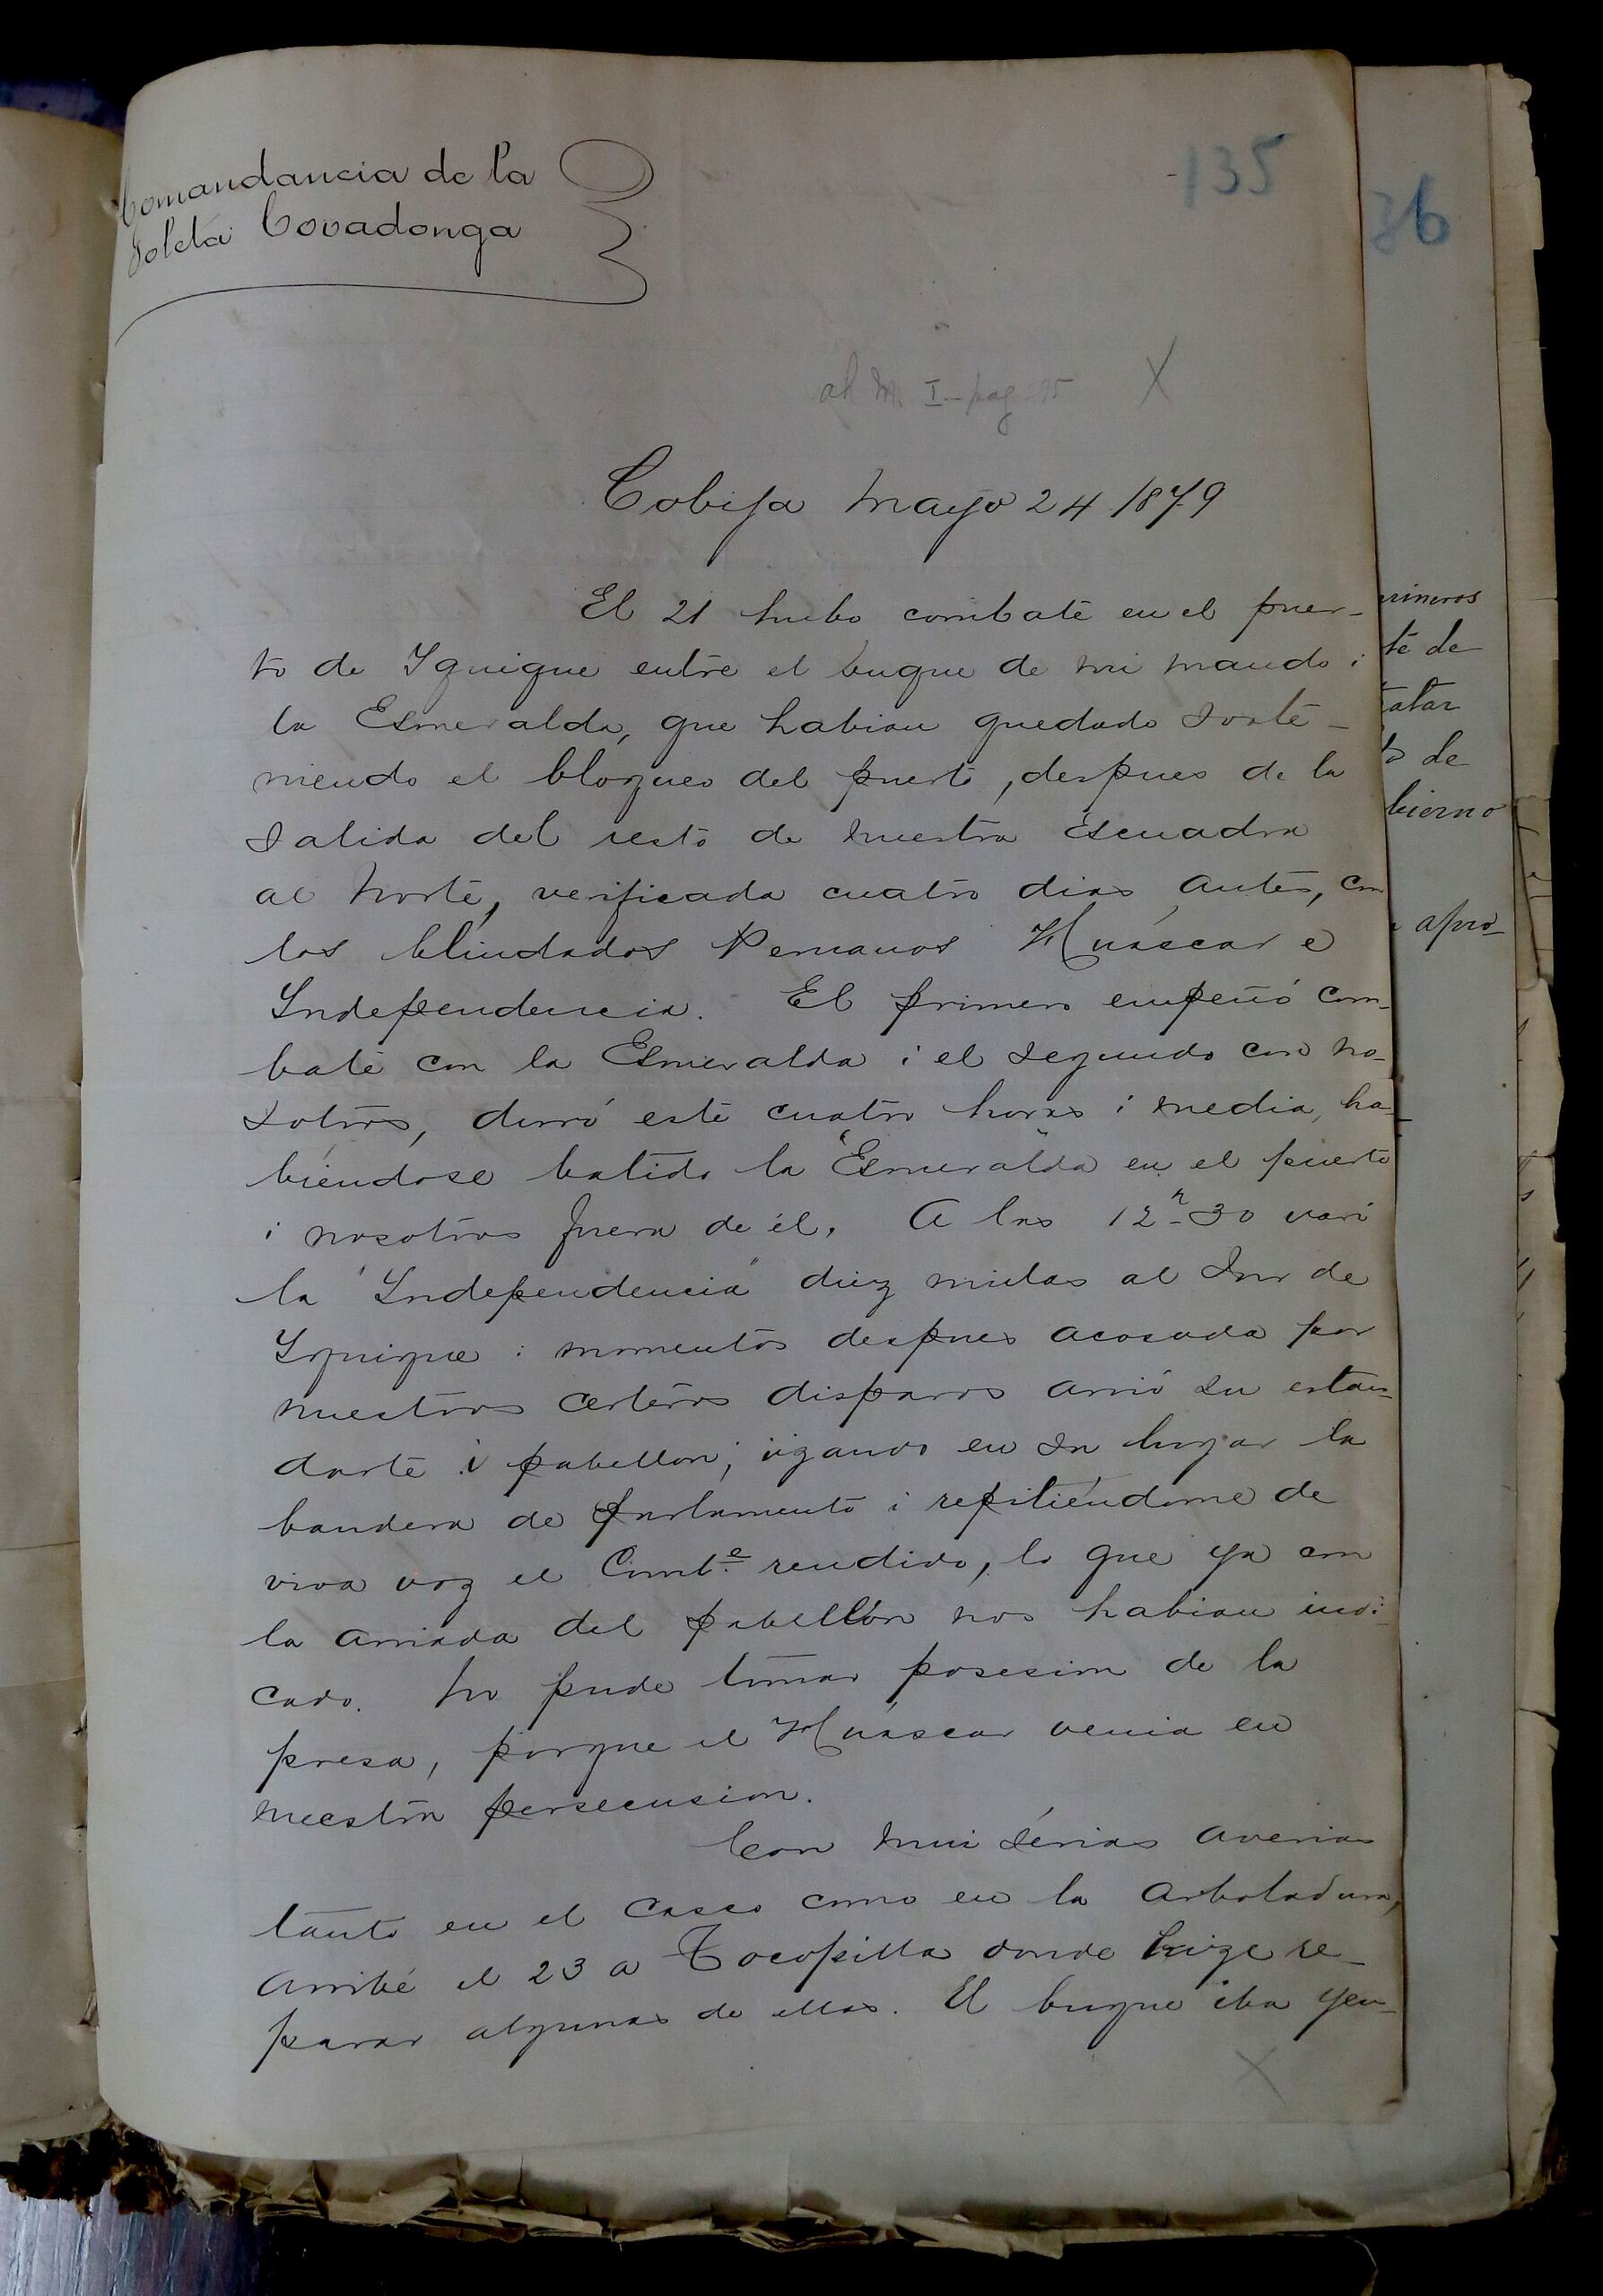 Comandancia de la
Goleta Covadonga
135
36
I - pag 95 X
Cobija Mayo 24 1879
El 21 hubo combate en el puer-
to de Iquique entre el buque de mi mando i
la Esmeralda, que habian quedado soste-
niendo el bloqueo del puerto, despues de la
salida del resto de nuestra Escuadra
al Norte, verificada cuatro dias antes, con
los blindados Peruanos Huáscar e
Independencia. El primero empeñó com-
bate con la Esmeralda i el segundo con no-
sotros, durró este cuatro horas i media, ha-
biéndose batido la "Esmeralda" en el puerto
i nosotros fuera de él. A las 12h 30 varó
la "Independencia" diez millas al Sur de
Iquique i momentos despues acosada por
nuestros certeros disparos arrió su estan-
darte i pabellon, izando en su lugar la
bandera de parlamento i repitiéndome de
viva voz el Combte rendido, lo que ya con
la arriada del pabellón nos habian indi-
cado. No pude tomar posesion de la
presa, porque el Huáscar venia en
nuestra persecusion.
Con mui sérias averias
tanto en el casco como en la arboladura,
arribé el 23 a Tocopilla donde hize re-
parar algunas de ellas. El buque iba yen-
X
rineros
te de
tatar
to de
bierno
apro-